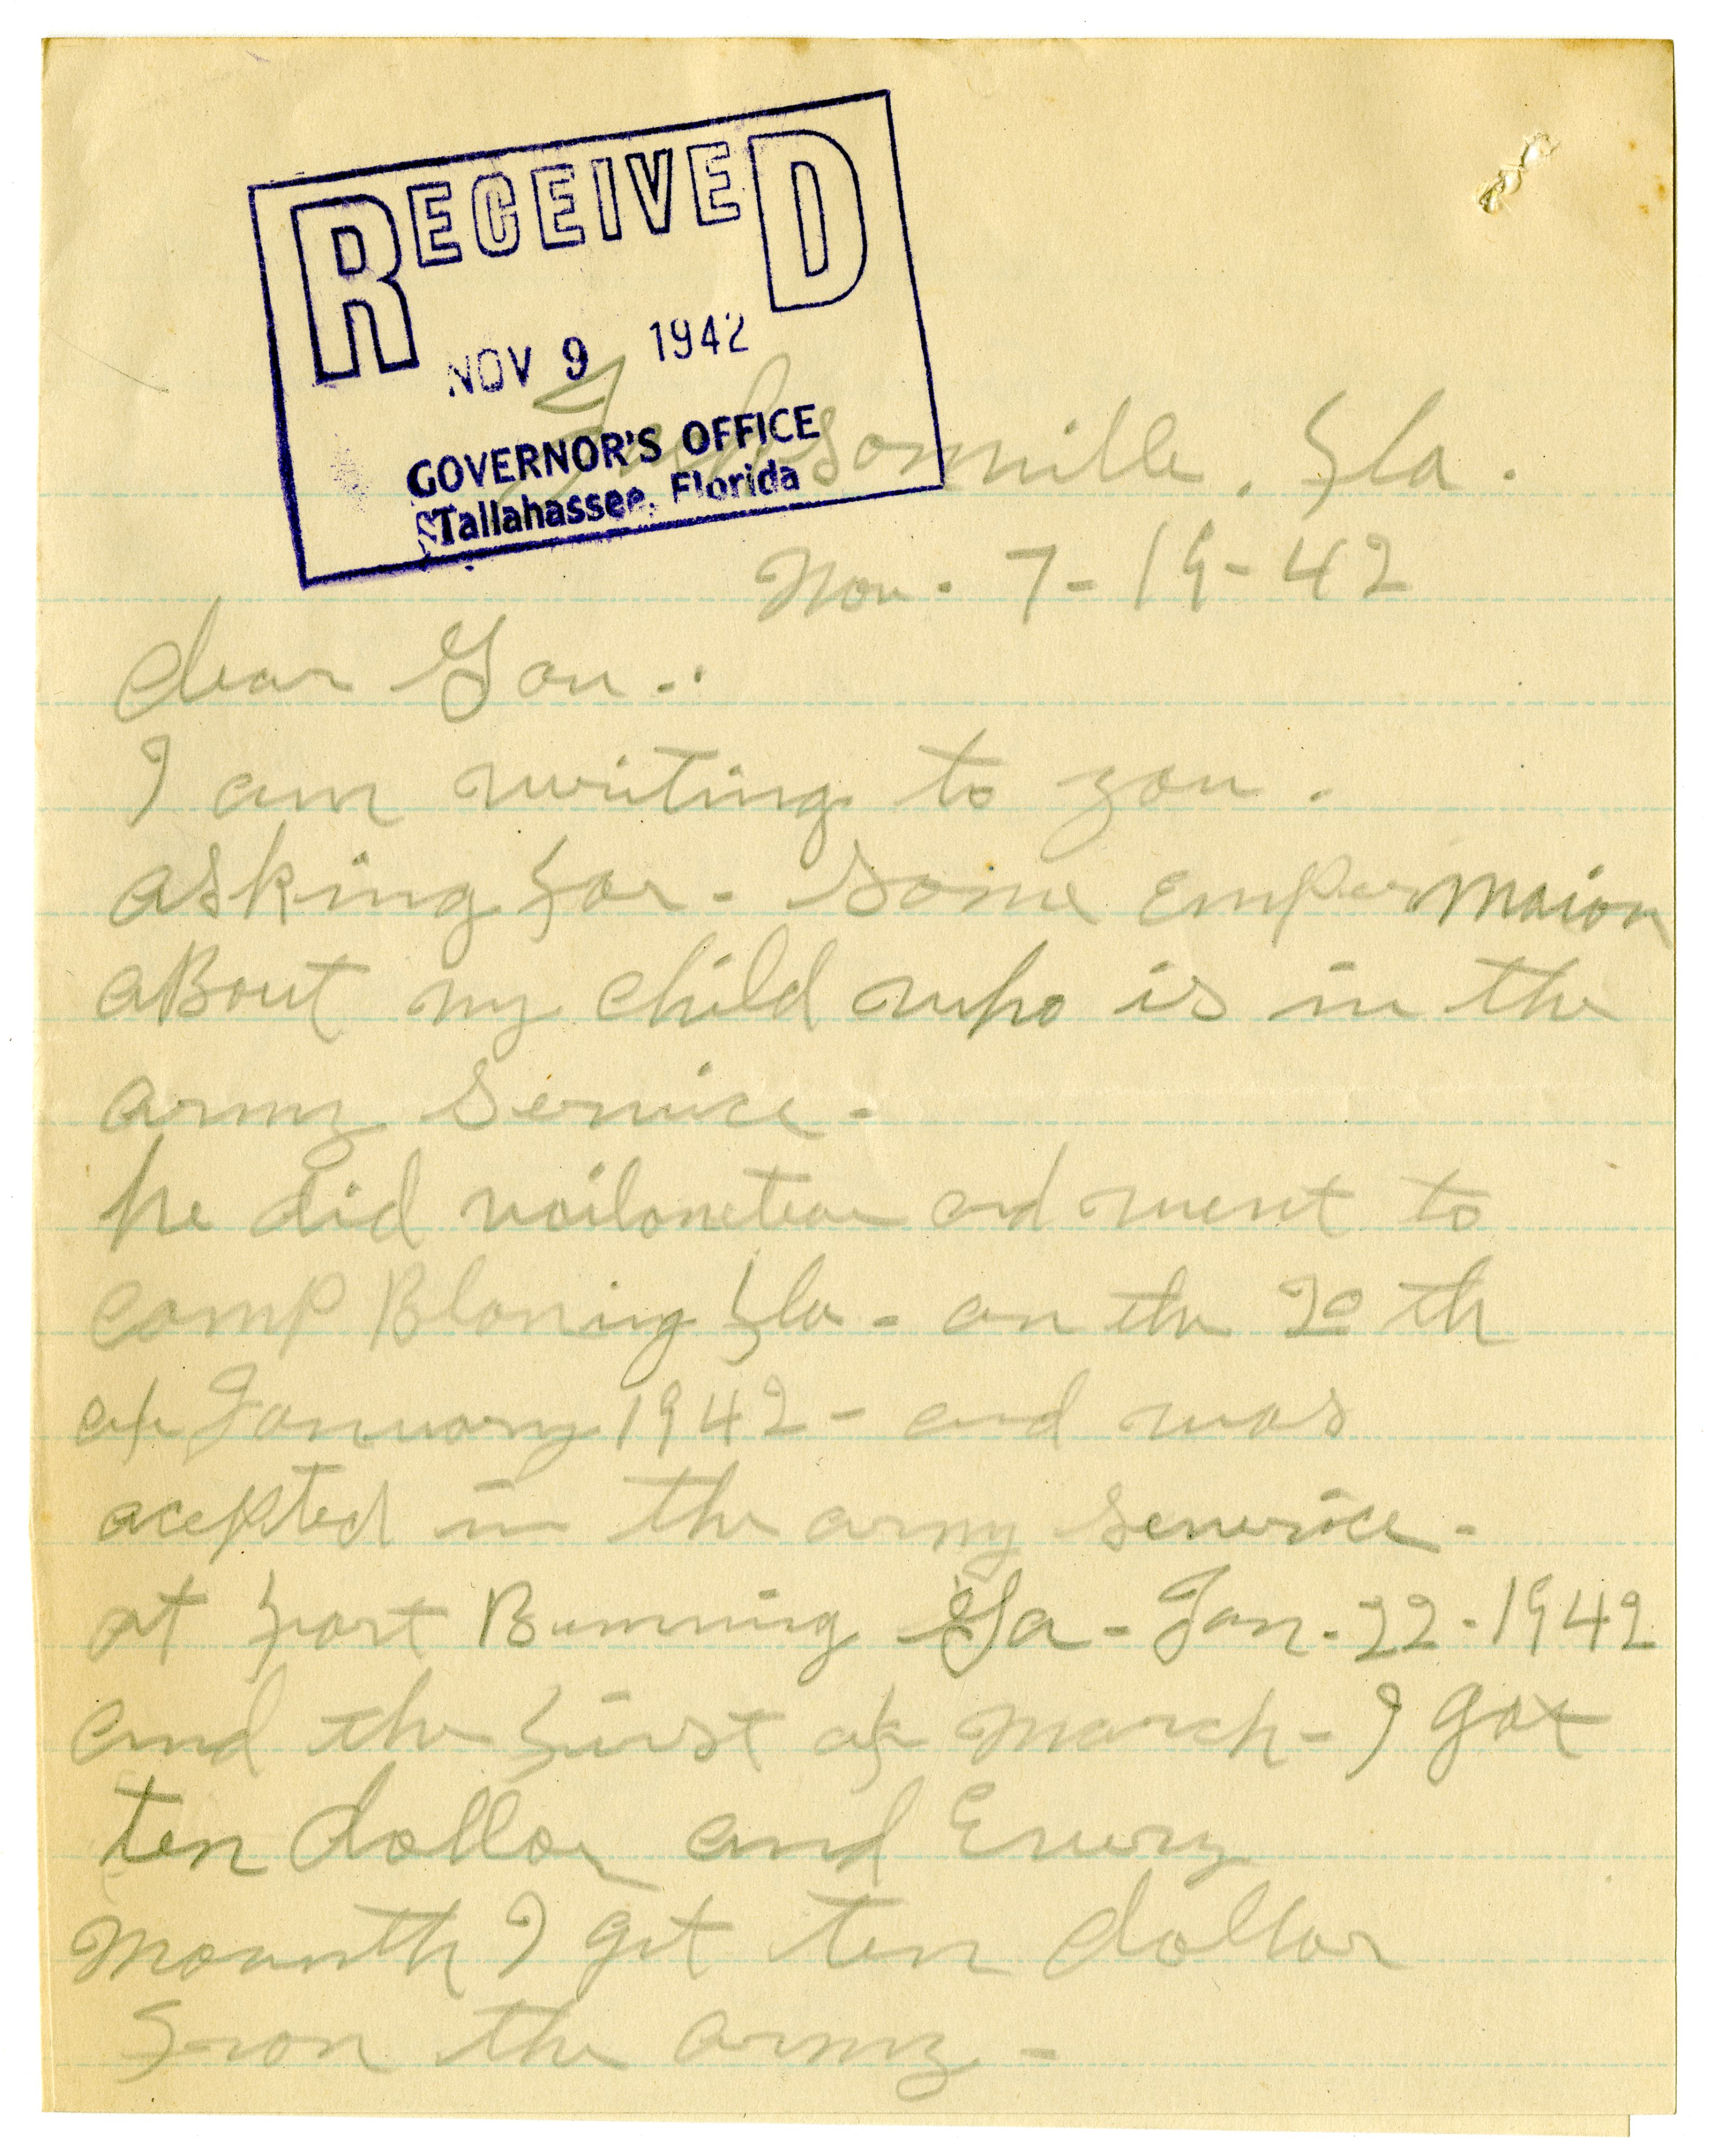 RECEIVED
NOV 9 1942
GOVERNOR'S OFFICE
Tallahassee, Florida
Jacksonville. Fla.
Nov. 7-19-42
dear Gov..
I am writing to you.
asking for. some empormaion
aBout my child who is in the
army service.
he did voiloneteer and went to
comp Blaning Fla - on the 20 th
of January 1942 - and was
acepted in the army serverice -
at fort Bunning Ga - Jan. 22 - 1942
and the first of march - I got
ten dollar and Every
mounth I get ten dollar
fron the army -